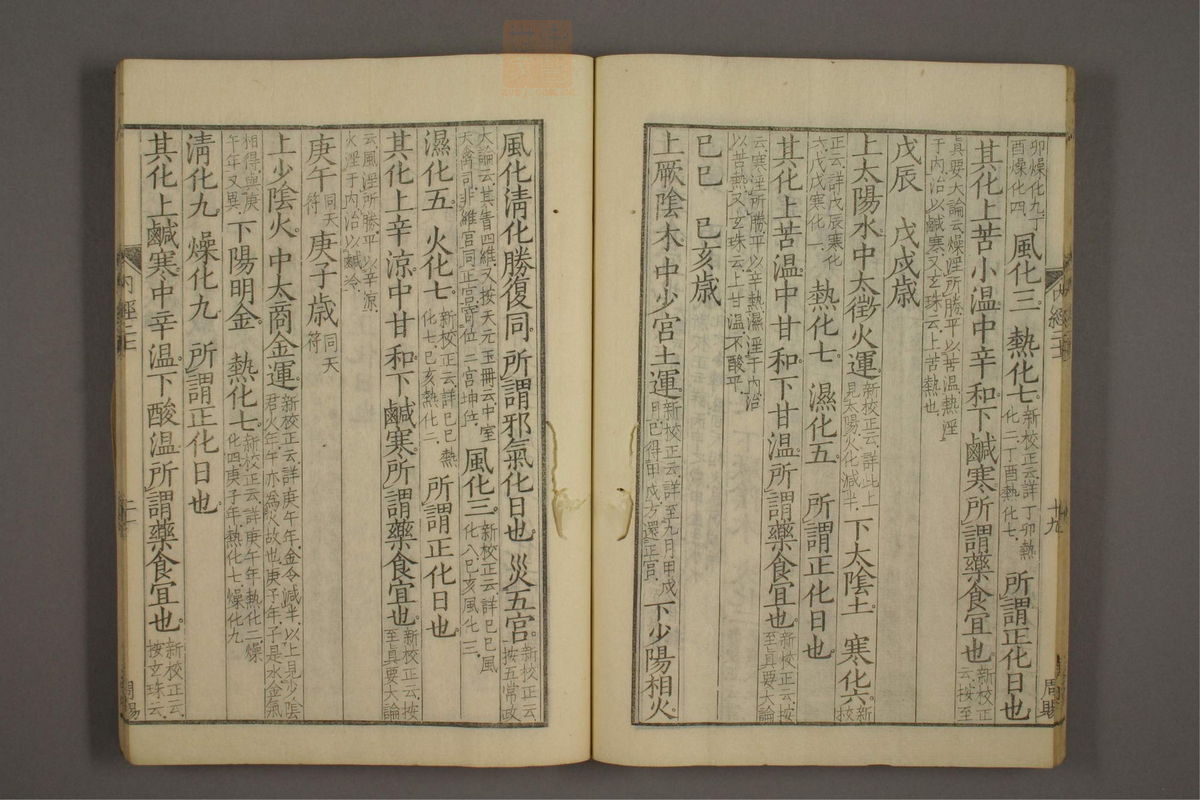 卯燥化九丁酉燥化四風化三熱化七新校正云詳丁卯熱化二丁酉熱化七所謂正化日也
其化上苦小溫中辛和下鹹寒所謂藥食宜也新校正云按至
真要大論云燥淫所勝平以苦溫熱淫于内治以鹹寒又玄珠云上苦熱也
戊辰 戊戌歲
上太陽水中太徵火運新校正云詳此上見太陽火化減半下太陰土寒化六新校
正云詳戊辰寒化六戊戌寒化一熱化七濕化五所謂正化日也
其化上苦溫中甘和下甘溫所謂藥食宜也新校正云按至真要大論
云寒淫所勝平以辛熱濕淫于内治以苦熱又玄珠云上甘溫下酸平
己巳 己亥歲
上厥陰木中少宮土運新校正云詳至九月甲戌月已得甲戌方還正宮下少陽相火
内經二十一
十九
周賜
風化清化勝復同所謂邪氣化日也災五宮新校正云按五常政
大論云其眚四維又按天元玉冊云中室天禽司非維宮同正宮寄位二宮坤位風化三新校正云詳己巳風化八己亥風化三
濕化五火化七新校正云詳己巳熱化七己亥熱化二所謂正化日也
其化上辛涼中甘和下鹹寒所謂藥食宜也新校正云按至真要大論
云風淫所勝平以辛涼火淫于内治以鹹冷
庚午同天符庚子歲同天符
上少陰火中太商金運新校正云詳庚午年金令減半以上見少陰君火年午亦為火故也庚子年子是水金氣
相得與庚午年又異下陽明金熱化七新校正云詳庚午年熱化二燥化四庚子年熱化七燥化九
清化九燥化九所謂正化日也
其化上鹹寒中辛溫下酸溫所謂藥食宜也新校正云按玄珠云
内經二十一
二十
周賜